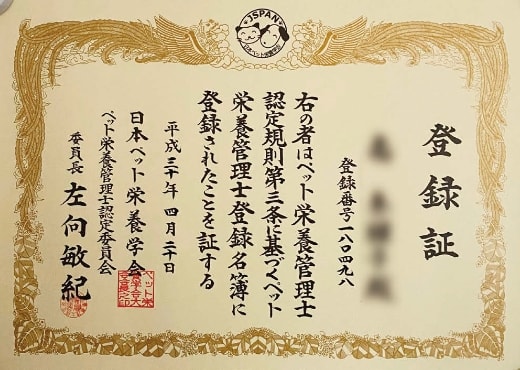 JSPAN
日本ペット栄養学会
登録証
登録番号一八〇四九八
右の者はペット栄養管理士
認定規則第三条に基づくペット
栄養管理士登録名簿に
登録されたことを証する
平成三十年 四月二十日
日本ペット栄養学会
ペット栄養管理士認定委員会
委員長 左向敏紀